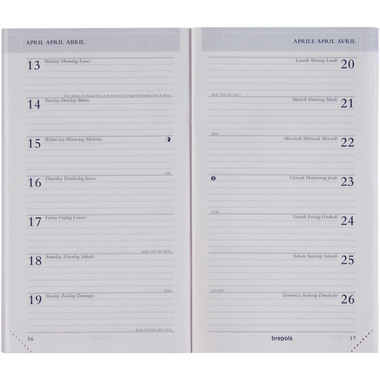 APRIL APRIL ABRIL
13 Monday Maandag Lunes
14 Tuesday Dinsdag Martes
15 Wednesday Woensdag Miércoles
16 Thursday Donderdag Jueves
17 Friday Vrijdag Viernes
18 Saturday Zaterdag Sábado
19 Sunday Zondag Domingo
16
brepols
APRILE APRIL AVRIL
Lunedì Montag Lundi 20
Martedì Dienstag Mardi 21
Mercoledì Mittwoch Mercredi 22
Giovedì Donnerstag Jeudi 23
Venerdì Freitag Vendredi 24
Sabato Samstag Samedi 25
Domenica Sonntag Dimanche 26
brepols
17